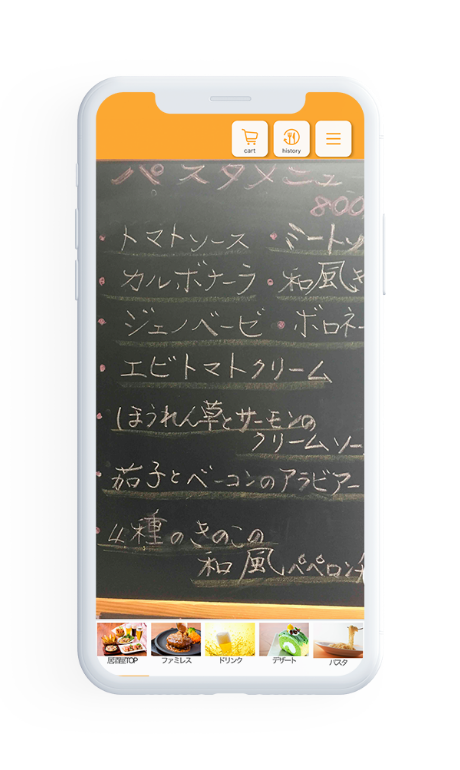 cart
history
パスタメニュ
800
・トマトソース ・ミートソ
・カルボナーラ ・和風き
・ジェノベーゼ ・ボロネー
・エビトマトクリーム
・ほうれん草とサーモンの
クリームソー
・茄子とベーコンのアラビアー
・4種のきのこの
和風ペペロンチ
居酒屋TOP
ファミレス
ドリンク
デザート
パスタ